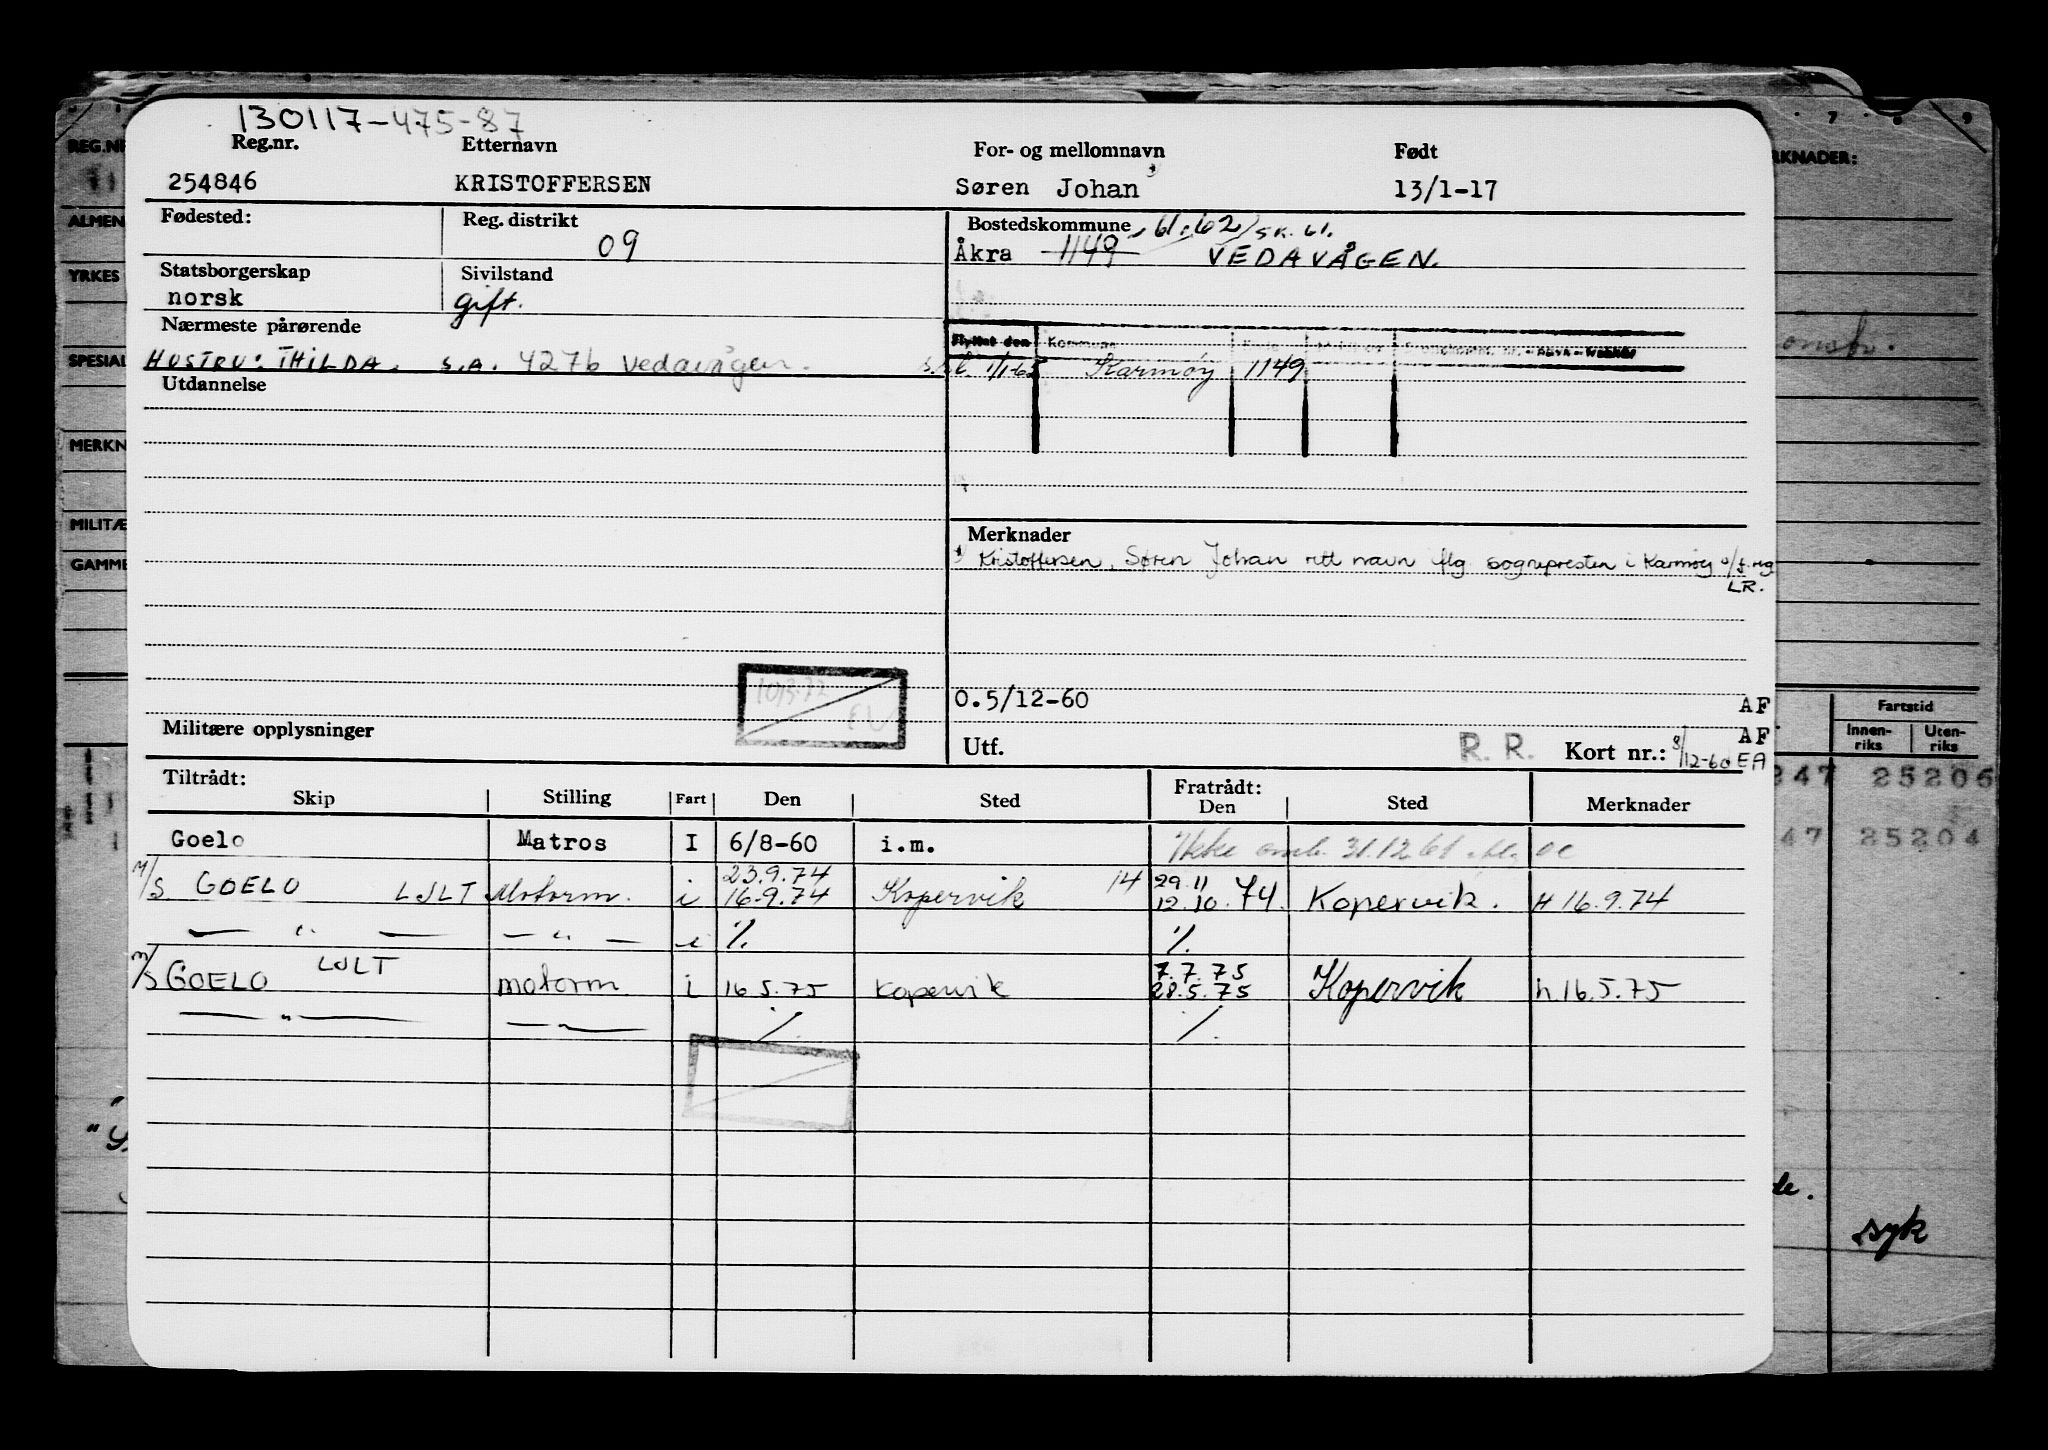 130117-475-87
Reg.nr. Etternavn For- og mellomnavn Født
254846 KRISTOFFERSEN Søren Johan 13/1-17
Fødested: Reg. distrikt Bostedskommune 61.62 / sk. 61.
09 Åkra 1149 VEDAVÅGEN.
Statsborgerskap Sivilstand
norsk gift.
Nærmeste pårørende Flyttet den Kommune
HUSTRU: THILDA. S.A. 4276 Vedavågen. 1/1-65 Karmøy 1149
Utdannelse
Merknader
Kristoffersen, Søren Johan rett navn flg. sognepresten i Karmøy
LR.
10/3-72
0.5/12-60 AF
Militære opplysninger
AF
Utf. R. R. Kort nr.: 8/12-60 EA
Tiltrådt: Fratrådt:
Skip Stilling Fart Den Sted Den Sted Merknader
Goelo Matros I 6/8-60 i.m. Ikke 31.12 61
23.9.74 14 29.11
M/S GOELO LJLT Motorm. i 16.9.74 Kopervik 12.10.74. Kopervik. H 16.9.74
— " — — " — i % %
M/S GOELO LJLT motorm i 16.5.75 Kopervik 7.7.75 28.5.75 Kopervik h 16.5.75
— " — — " — % %
REG.NR
ALMEN
YRKES
SPESIAL
MERKN
MILITÆ
GAMME
7 8 9
RKNADER:
Fartstid
Innen-riks Uten-riks
247 25206
47 25204
syk